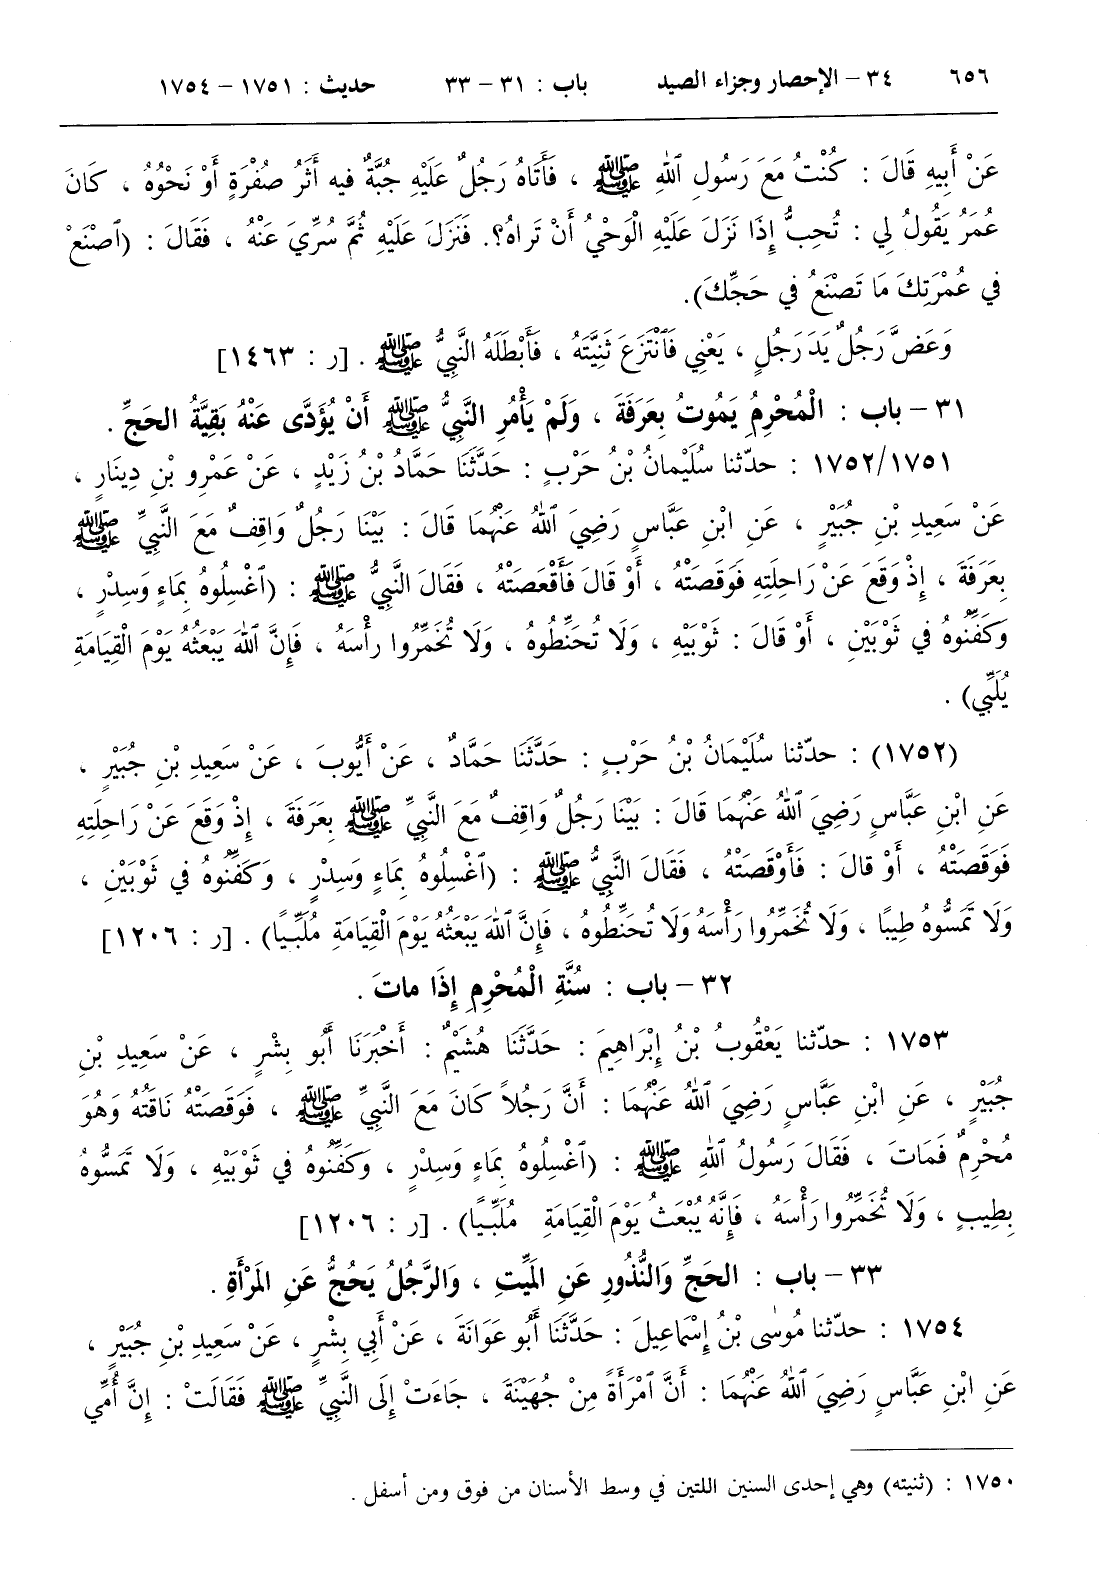 ٦٥٦ ٣٤ – الإحصار وجزاء الصيد باب : ٣١ – ٣٣ حديث : ١٧٥١ – ١٧٥٤
عَنْ أَبِيهِ قَالَ : كُنْتُ مَعَ رَسُولِ ٱللهِ ﷺ ، فَأَتَاهُ رَجُلٌ عَلَيْهِ جُبَّةٌ فيه أَثَرُ صُفْرَةٍ أَوْ نَحْوُهُ ، كانَ
عُمَرُ يَقُولُ لِي : تُحِبُّ إِذَا نَزَلَ عَلَيْهِ الْوَحْيُ أَنْ تَراهُ؟. فَنَزَلَ عَلَيْهِ ثُمَّ سُرِّيَ عَنْهُ ، فَقَالَ : (ٱصْنَعْ
في عُمْرَتِكَ مَا تَصْنَعُ في حَجِّكَ).
وَعَضَّ رَجُلٌ يَدَ رَجُلٍ ، يَعْنِي فَٱنْتَزَعَ ثَنِيَّتَهُ ، فَأَبْطَلَهُ النَّبِيُّ ﷺ . [ر : ١٤٦٣]
٣١ – باب : الْمُحْرِمُ يَمُوتُ بِعَرَفَةَ ، وَلَمْ يَأْمُرِ النَّبِيُّ ﷺ أَنْ يُؤَدَّى عَنْهُ بَقِيَّةُ الحَجِّ .
١٧٥٢/١٧٥١ : حدّثنا سُلَيْمانُ بْنُ حَرْبٍ : حَدَّثَنَا حَمَّادُ بْنُ زَيْدٍ ، عَنْ عَمْرِو بْنِ دِينَارٍ ،
عَنْ سَعِيدِ بْنِ جُبَيْرٍ ، عَنِ ابْنِ عَبَّاسٍ رَضِيَ ٱللهُ عَنْهُمَا قَالَ : بَيْنَا رَجُلٌ وَاقِفٌ مَعَ النَّبِيِّ ﷺ
بِعَرَفَةَ ، إِذْ وَقَعَ عَنْ رَاحِلَتِهِ فَوَقَصَتْهُ ، أَوْ قالَ فَأَقْعَصَتْهُ ، فَقَالَ النَّبِيُّ ﷺ : (ٱغْسِلُوهُ بِمَاءٍ وَسِدْرٍ ،
وَكَفِّنُوهُ في ثَوْبَيْنِ ، أَوْ قالَ : ثَوْبَيْهِ ، وَلَا تُحَنِّطُوهُ ، وَلَا تُخَمِّرُوا رأْسَهُ ، فَإِنَّ ٱللهَ يَبْعَثُهُ يَوْمَ الْقِيَامَةِ
يُلَبِّي) .
(١٧٥٢) : حدّثنا سُلَيْمَانُ بْنُ حَرْبٍ : حَدَّثَنَا حَمَّادٌ ، عَنْ أَيُّوبَ ، عَنْ سَعِيدِ بْنِ جُبَيْرٍ ،
عَنِ ابْنِ عَبَّاسٍ رَضِيَ ٱللهُ عَنْهُمَا قَالَ : بَيْنَا رَجُلٌ وَاقِفٌ مَعَ النَّبِيِّ ﷺ بِعَرَفَةَ ، إِذْ وَقَعَ عَنْ رَاحِلَتِهِ
فَوَقَصَتْهُ ، أَوْ قالَ : فَأَوْقَصَتْهُ ، فَقَالَ النَّبِيُّ ﷺ : (ٱغْسِلُوهُ بِمَاءٍ وَسِدْرٍ ، وَكَفِّنُوهُ في ثَوْبَيْنِ ،
وَلَا تَمَسُّوهُ طِيبًا ، وَلَا تُخَمِّرُوا رَأْسَهُ وَلَا تُحَنِّطُوهُ ، فَإِنَّ ٱللهَ يَبْعَثُهُ يَوْمَ الْقِيَامَةِ مُلَبِّيًا) . [ر : ١٢٠٦]
٣٢ – باب : سُنَّةِ الْمُحْرِمِ إِذَا ماتَ .
١٧٥٣ : حدّثنا يَعْقُوبُ بْنُ إِبْرَاهِيمَ : حَدَّثَنَا هُشَيْمٌ : أَخْبَرَنَا أَبُو بِشْرٍ ، عَنْ سَعِيدِ بْنِ
جُبَيْرٍ ، عَنِ ابْنِ عَبَّاسٍ رَضِيَ ٱللهُ عَنْهُمَا : أَنَّ رَجُلاً كانَ مَعَ النَّبِيِّ ﷺ ، فَوَقَصَتْهُ نَاقَتُهُ وَهُوَ
مُحْرِمٌ فَمَاتَ ، فَقَالَ رَسُولُ ٱللهِ ﷺ : (ٱغْسِلُوهُ بِمَاءٍ وَسِدْرٍ ، وَكَفِّنُوهُ في ثَوْبَيْهِ ، وَلَا تَمَسُّوهُ
بِطِيبٍ ، وَلَا تُخَمِّرُوا رَأْسَهُ ، فَإِنَّهُ يُبْعَثُ يَوْمَ الْقِيَامَةِ مُلَبِّيًا) . [ر : ١٢٠٦]
٣٣ – باب : الحَجِّ وَالنُّذُورِ عَنِ المَيِّتِ ، وَالرَّجُلُ يَحُجُّ عَنِ المَرْأَةِ .
١٧٥٤ : حدّثنا مُوسٰى بْنُ إِسْمَاعِيلَ : حَدَّثَنَا أَبُو عَوَانَةَ ، عَنْ أَبِي بِشْرٍ ، عَنْ سَعِيدِ بْنِ جُبَيْرٍ ،
عَنِ ابْنِ عَبَّاسٍ رَضِيَ ٱللهُ عَنْهُمَا : أَنَّ ٱمْرَأَةً مِنْ جُهَيْنَةَ ، جَاءَتْ إِلَى النَّبِيِّ ﷺ فَقَالَتْ : إِنَّ أُمِّي
١٧٥٠ : (ثنيته) وهي إحدى السنين اللتين في وسط الأسنان من فوق ومن أسفل .